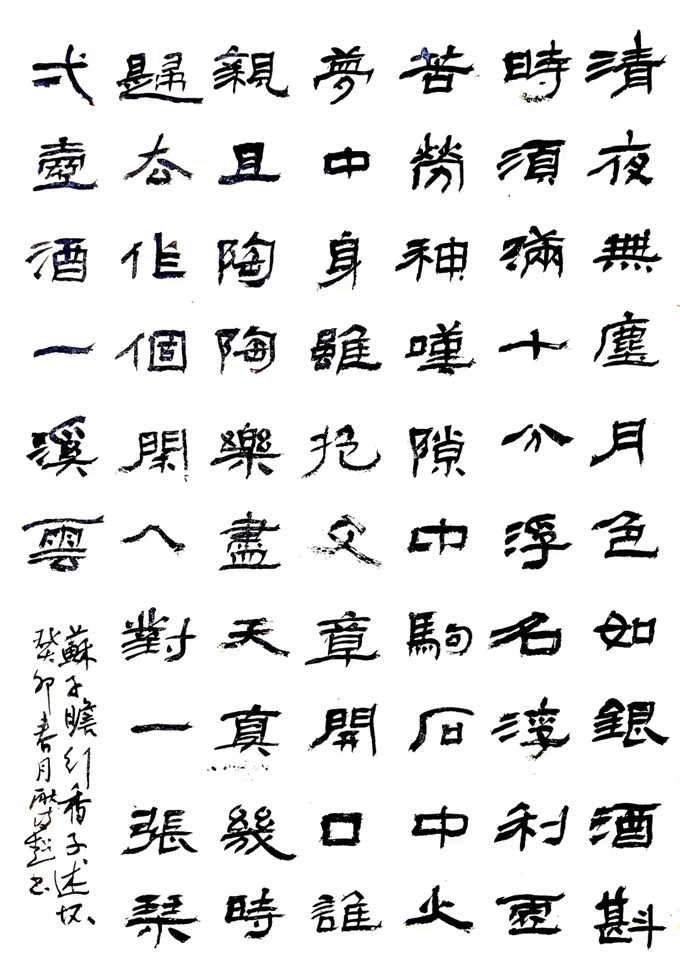 清夜無塵月色如銀酒斟
時須滿十分浮名浮利虛
苦勞神嘆隙中駒石中火
夢中身雖抱文章開口誰
親且陶陶樂盡天真幾時
歸去作個閑人對一張琴
弌壺酒一溪雲
蘇子瞻行香子述怀
癸卯春月超书